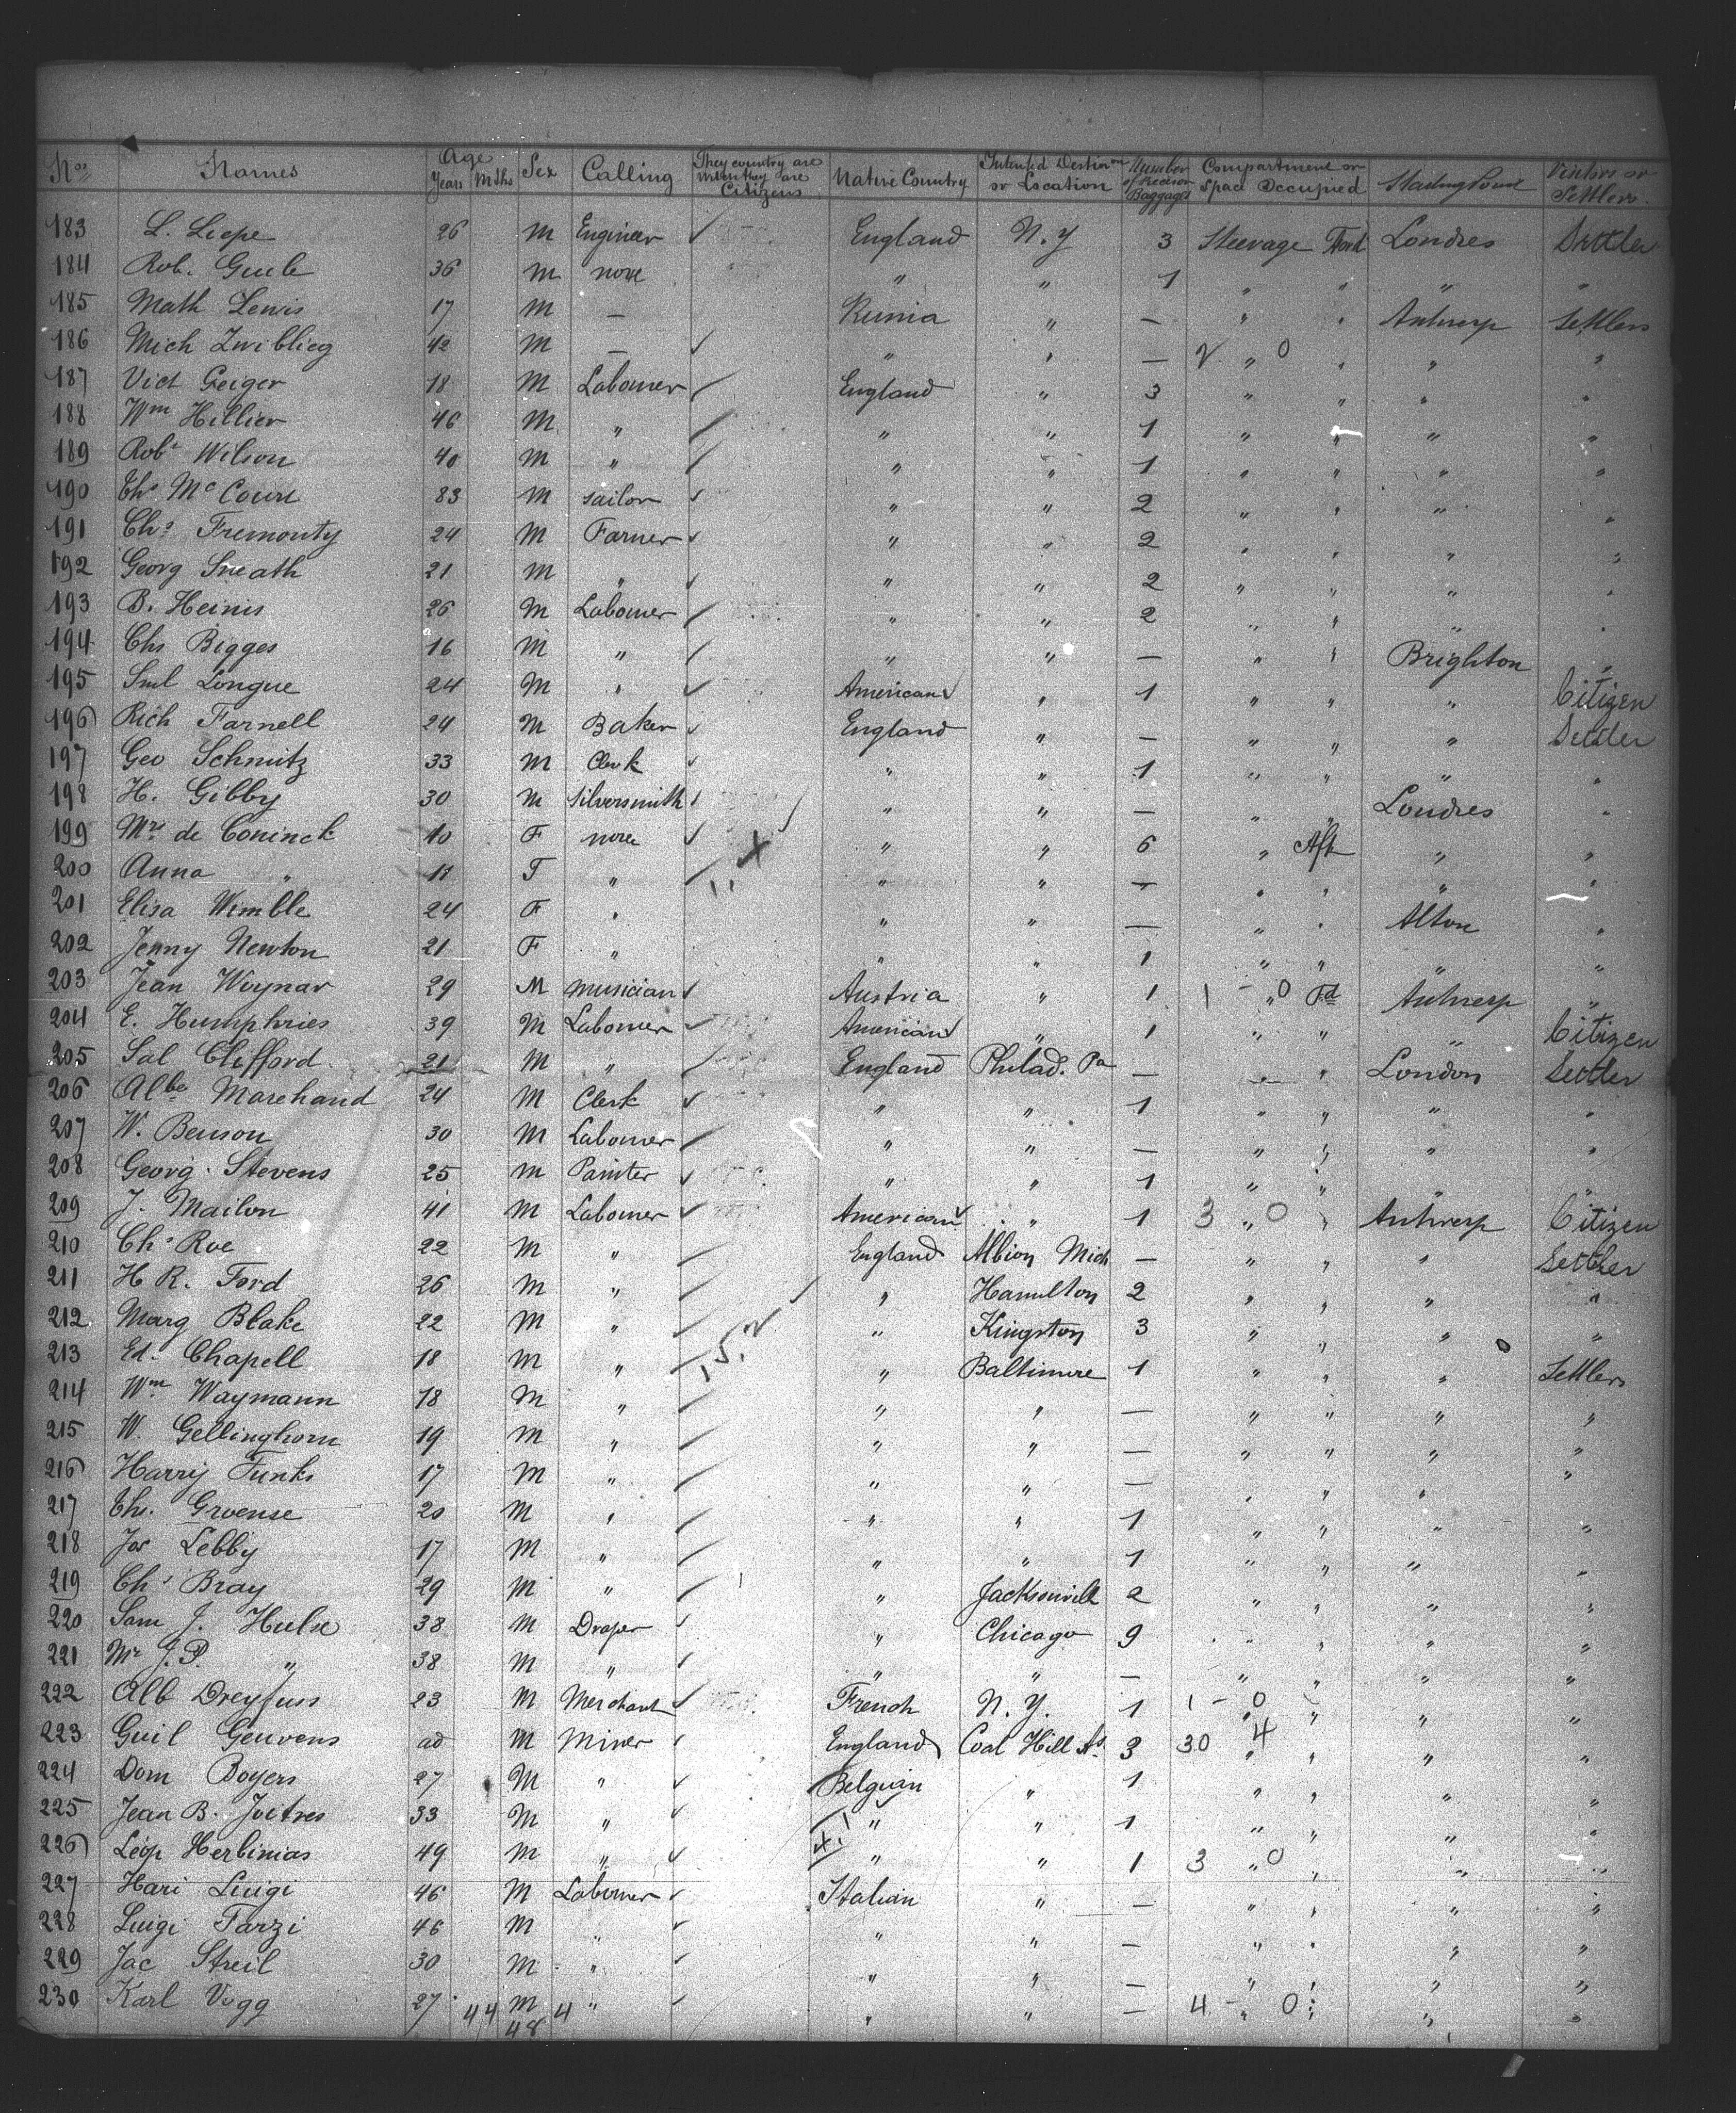 Nos Names Age Years Mths Sex Calling They country are Citizens Native Country Intended Destinon or Location Number Baggages Compartment or Space Occupied Starting Point Visitors or Settlers
183 L. Liepe 26 M Engineer ✓ England N.Y 3 Steerage Ford Londres Settler
184 Rob. 36 M none " " 1 " " " "
185 Math Lewis 17 M — " — " " Antwerp Settlers
186 Mich 42 M — ✓ " " — 2 " 0 " " "
187 Vict Geiger 18 M Labourer / England " 3 " " " "
188 Wm Hillier 46 M " / " " 1 " " " "
189 Robt Wilson 40 M " / " " 1 " " " "
190 Ths Mc Court 83 M sailor ✓ " " 2 " " " "
191 Chs Fremonty 24 M Farner ✓ " " 2 " " " "
192 Georg Sneath 21 M " ✓ " " 2 " " " "
193 B. Heinis 26 M Labourer / " " 2 " " " "
194 Chs Bigges 16 M " / " " — " " Brighton "
195 Sml Longue 24 M " ✓ American " 1 " " " Citizen
196 Rich Farnell 24 M Baker ✓ England " — " " " Settler
197 Geo Schmitz 33 M Clerk ✓ " " 1 " " " "
198 H. Gibby 30 M Silversmith ✓ " " — " " Londres "
199 de Coninck 40 F none ✓ " " 6 " Aft " "
200 Anna " 11 F " / " " — " " " "
201 Elisa Wimble 24 F " " " — " " Alton "
202 Jenny Newton 21 F " " " 1 " " " "
203 Jean Woynar 29 M musician ✓ Austria " 1 1 - " 0 Fd Antwerp "
204 E. Humphries 39 M Labourer ✓ American " 1 " " " Citizen
205 Sal Clifford 21 M " / England Philad. Pa — " " London Settler
206 Albe Marchand 24 M Clerk ✓ " " 1 " " " "
207 W. Benson 30 M Labourer / " " — " " " "
208 Georg. Stevens 25 M Painter ✓ " " 1 " " " "
209 J. Mailon 41 M Labourer ✓ American " 1 3 " 0 " Antwerp Citizen
210 Chs Roe 22 M " / England Albion Mich — " " " Settler
211 H R. Ford 26 M " / " Hamilton 2 " " " "
212 Marg Blake 22 M " / " Kingston 3 " " " "
213 Ed. Chapell 18 M " / " Baltimore 1 " " " Settlers
214 Wm Waymann 18 M " / " " — " " " "
215 W. Gellinghorn 19 M " / " " — " " " "
216 Harry Funks 17 M " / " " — " " " "
217 Ths. Groense 20 M " / " " 1 " " " "
218 Jos Lebby 17 M " / " " 1 " " " "
219 Chs Bray 29 M " / " Jacksonvill 2 " " " "
220 Sam J. Hulse 38 M Draper ✓ " Chicago 9 " " " "
221 Mr J. P. " 38 M " / " " — " " " "
222 Alb Dreyfuss 23 M Merchant ✓ French N.Y. 1 1 - 0 " " "
223 Guil Geuvens ad M Miner ✓ England Coal Hill As. 3 30 4 " " " "
224 Dom Boyers 27 M " ✓ Belgian " 1 " " " "
225 Jean B. Joitres 33 M " ✓ " " 1 " " " "
226 Léop Herbinias 49 M " ✓ " " 1 3 " 0 " " "
227 Hari Luigi 46 M Labourer ✓ Italian " — " " " "
228 Luigi Farzi 46 M " ✓ " " — " " " "
229 Jac Streil 30 M " ✓ " " — " " " "
230 Karl Vogg 27 M " ✓ " " — 4 - " 0 " " "
44 48 4